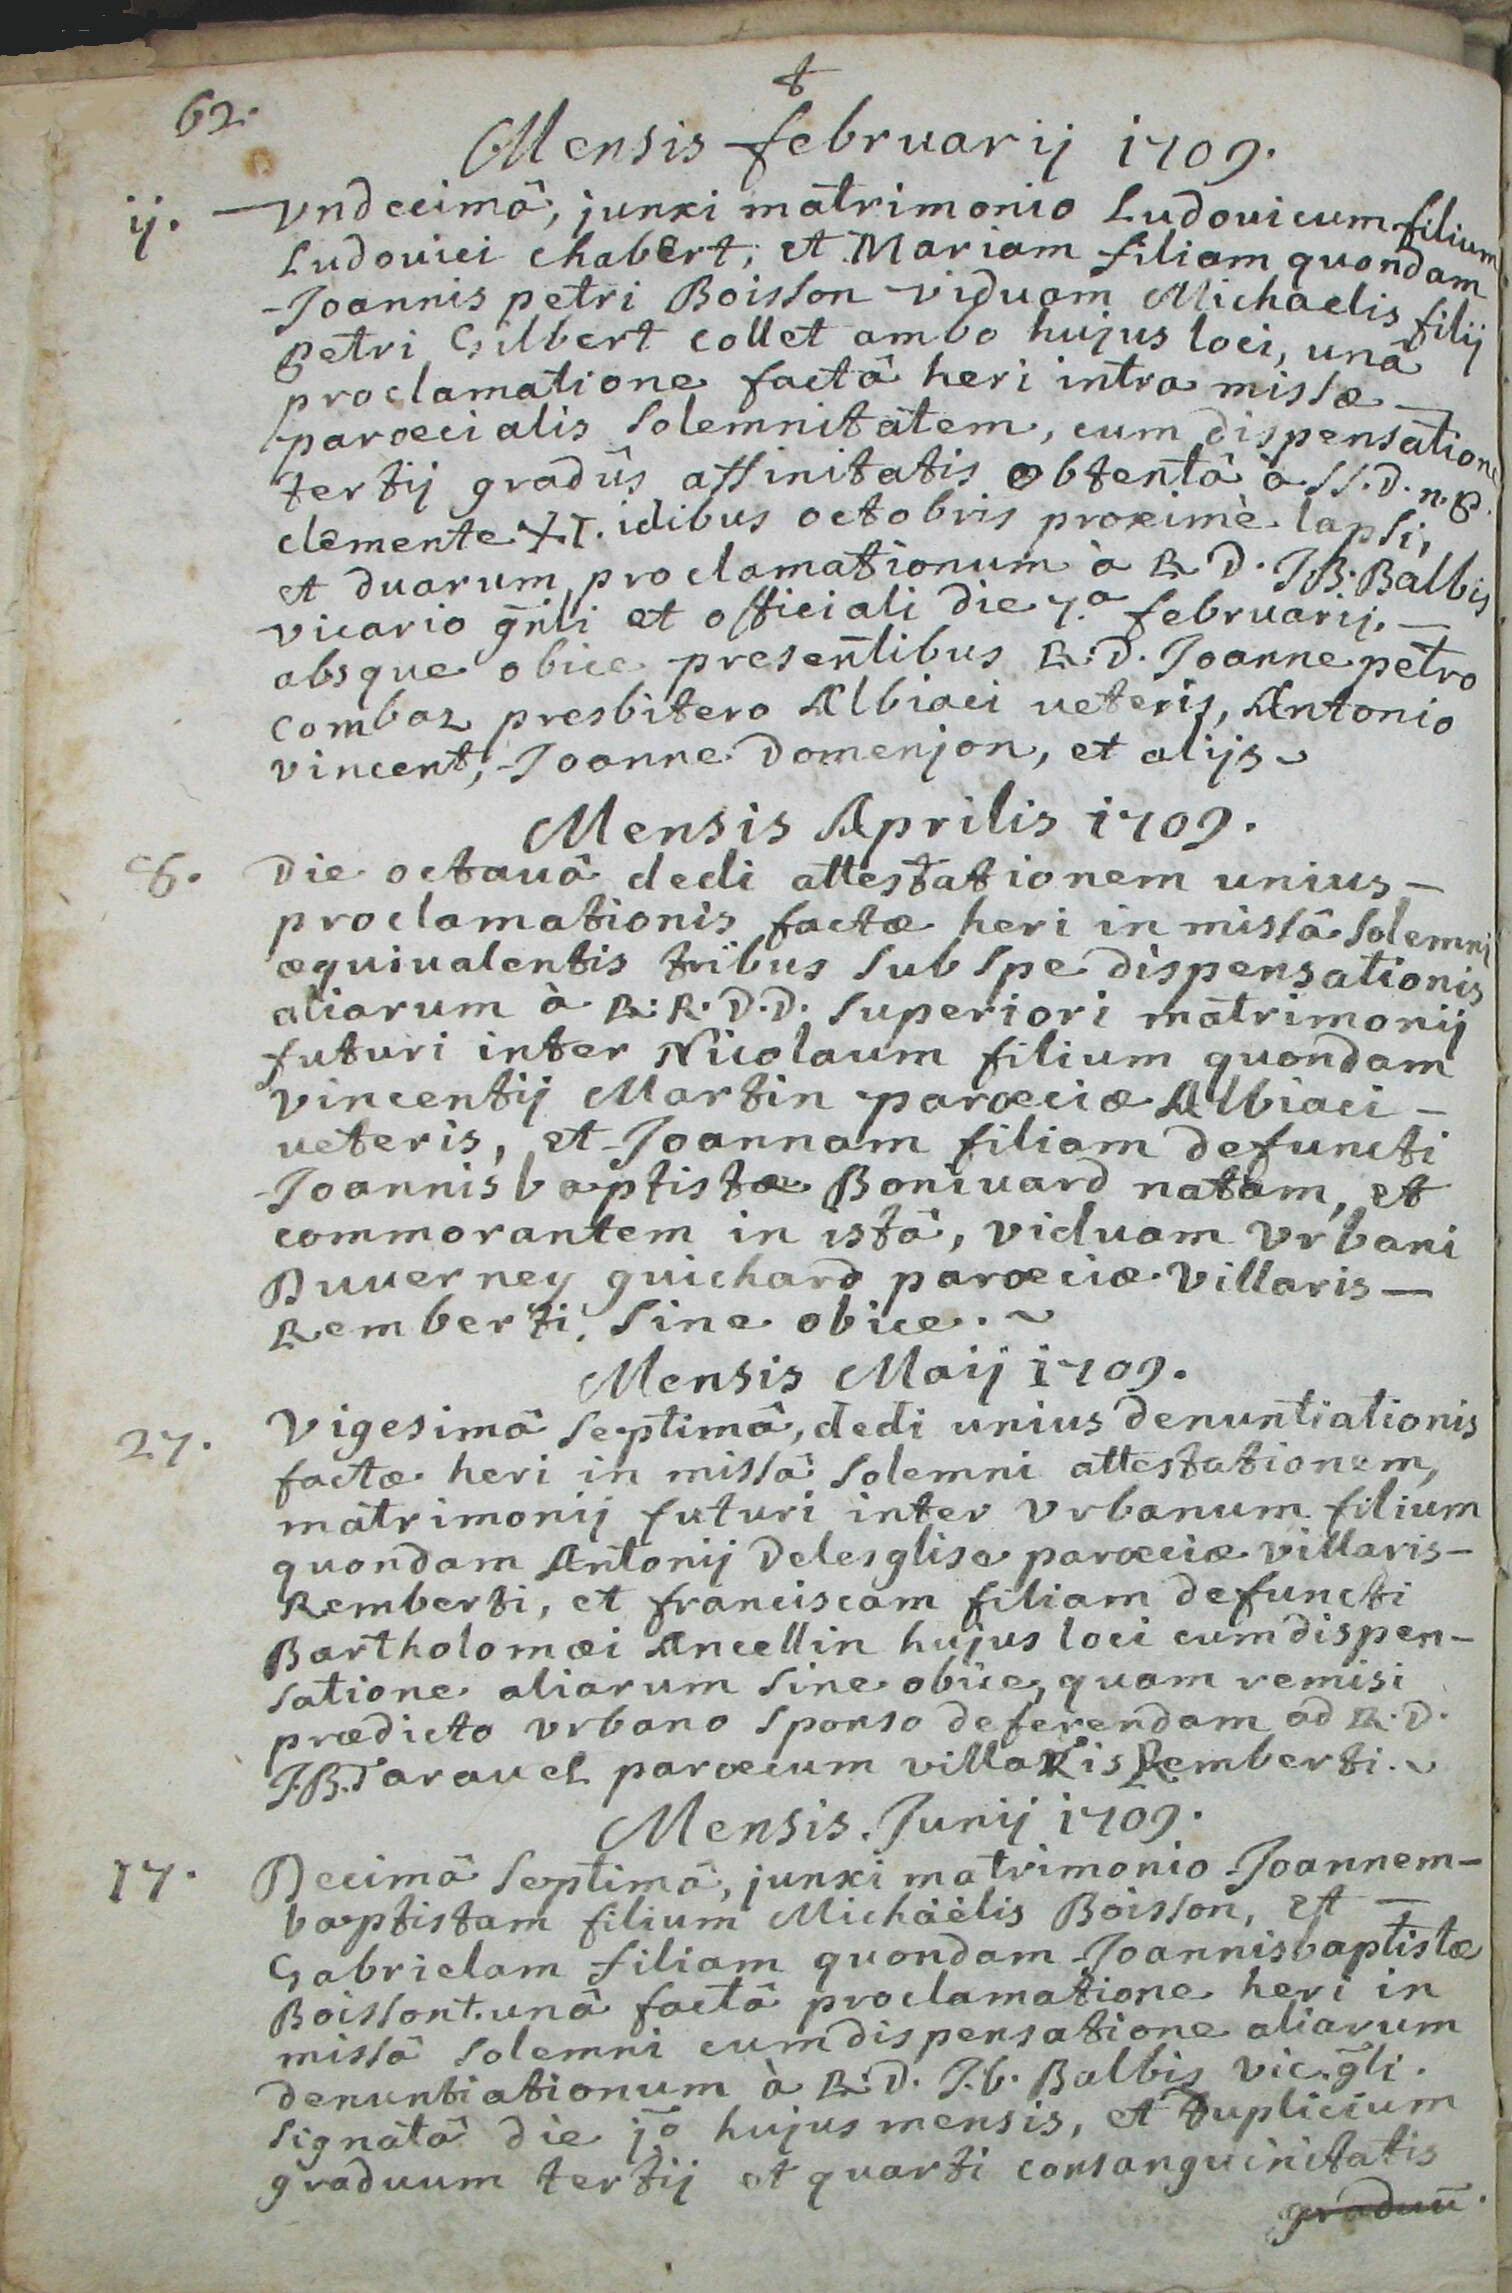 62.
Mensis februarij 1709.
ij. Vndecimâ, junxi matrimonio Ludouicum filium
Ludouici chabert, et Mariam filiam quondam
Joannis petri Boisson viduam Michaelis filij
petri Gilbert collet ambo hujus loci, unâ
proclamatione factâ heri intra missæ
paroecialis solemnitatem, cum dispensatione
tertij gradûs affinitatis obtentâ à SS. D. n. P.
clemente XI. idibus octobris proximè lapsi,
et duarum proclamationum à R D. J.B. Balbis
vicario gñli et officiali die 7.a februarij.
absque obice presentibus R. D. Joanne petro
Combaz presbitero Albiaci ueteris, Antonio
vincent, Joanne Domenjon, et alijs
Mensis Aprilis 1709.
8. Die octauâ dedi attestationem unius
proclamationis factæ heri in missâ solemni
æquiualentis tribus sub spe dispensationis
aliarum à R. R. D. D. superiori matrimonij
futuri inter Nicolaum filium quondam
vincentij Martin paroeciæ Albiaci
ueteris, et Joannam filiam defuncti
Joannisbaptistæ Boniuard natam, et
commorantem in istâ, viduam Vrbani
Duuerney guichard paroeciæ Villaris
Remberti, sine obice.
Mensis Maij 1709.
27. Vigesimâ septimâ, dedi unius denuntiationis
factæ heri in missâ solemni attestationem,
matrimonij futuri inter Vrbanum filium
quondam Antonij Delesglise paroeciæ villaris-
Remberti, et franciscam filiam defuncti
Bartholomæi Ancellin hujus loci cum dispen-
satione aliarum sine obice, quam remisi
prædicto Vrbano sponso deferendam ad R. D.
J.B. Tarauel paroecum villaris Remberti.
Mensis Junij 1709.
17. Decimâ septimâ, junxi matrimonio Joannem-
baptistam filium Michaèlis Boisson, et
Gabrielam filiam quondam Joannisbaptistæ
Boissont. unâ factâ proclamatione heri in
missâ solemni cum dispensatione aliarum
denuntiationum à R. D. J. b. Balbis vic. gli.
signatâ die jo hujus mensis, et duplicium
graduum tertij et quarti consanguinitatis
graduū.